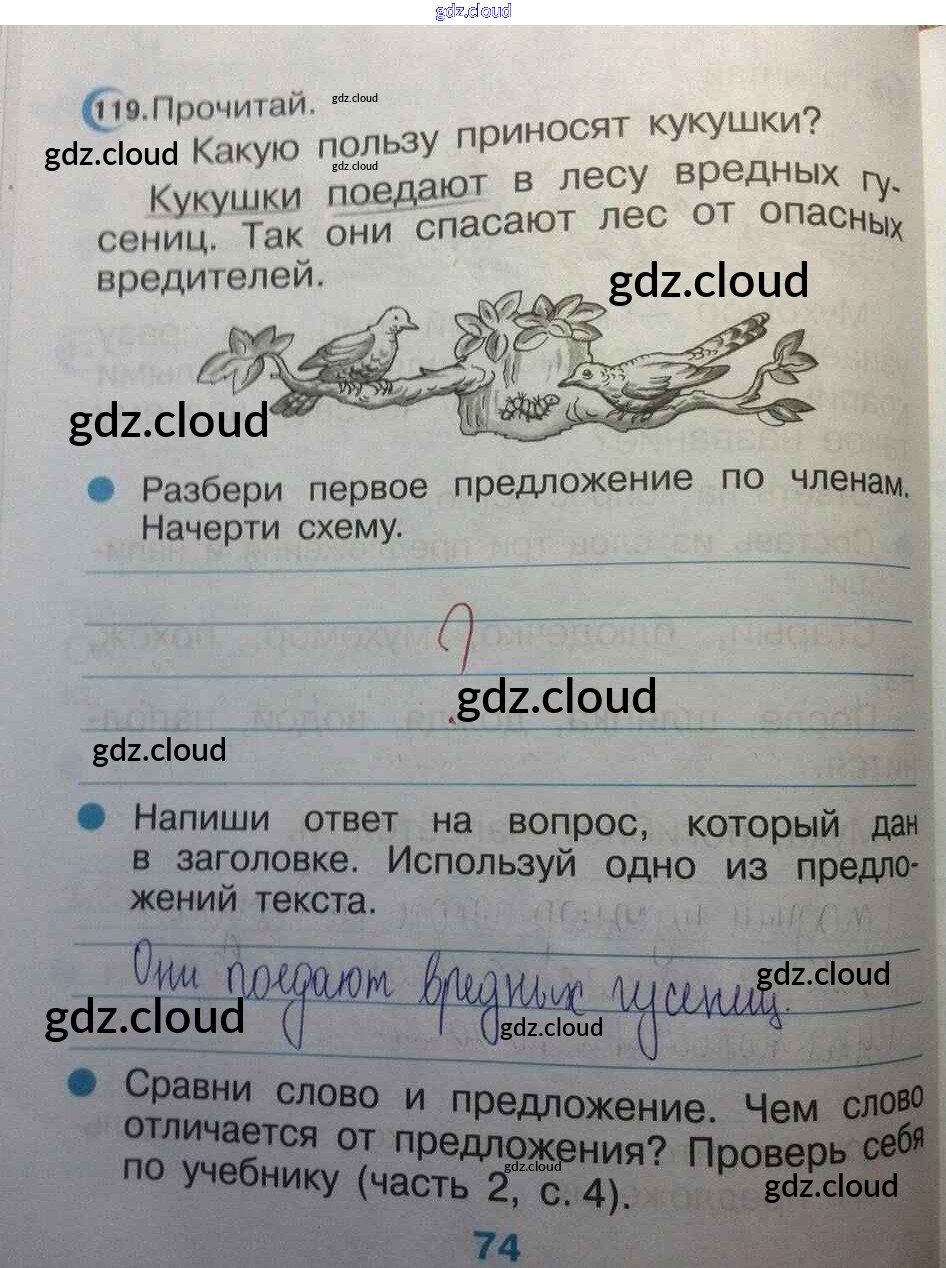 gdz.cloud
119. Прочитай.
gdz.cloud
gdz.cloud Какую пользу приносят кукушки?
gdz.cloud
Кукушки поедают в лесу вредных гу-
сениц. Так они спасают лес от опасных
вредителей.
gdz.cloud
gdz.cloud
Разбери первое предложение по членам.
Начерти схему.
?
gdz.cloud
gdz.cloud
Напиши ответ на вопрос, который дан
в заголовке. Используй одно из предло-
жений текста.
Они поедают вредных гусениц.
gdz.cloud
gdz.cloud
gdz.cloud
Сравни слово и предложение. Чем слово
отличается от предложения? Проверь себя
по учебнику (часть 2, с. 4).
gdz.cloud
gdz.cloud
74